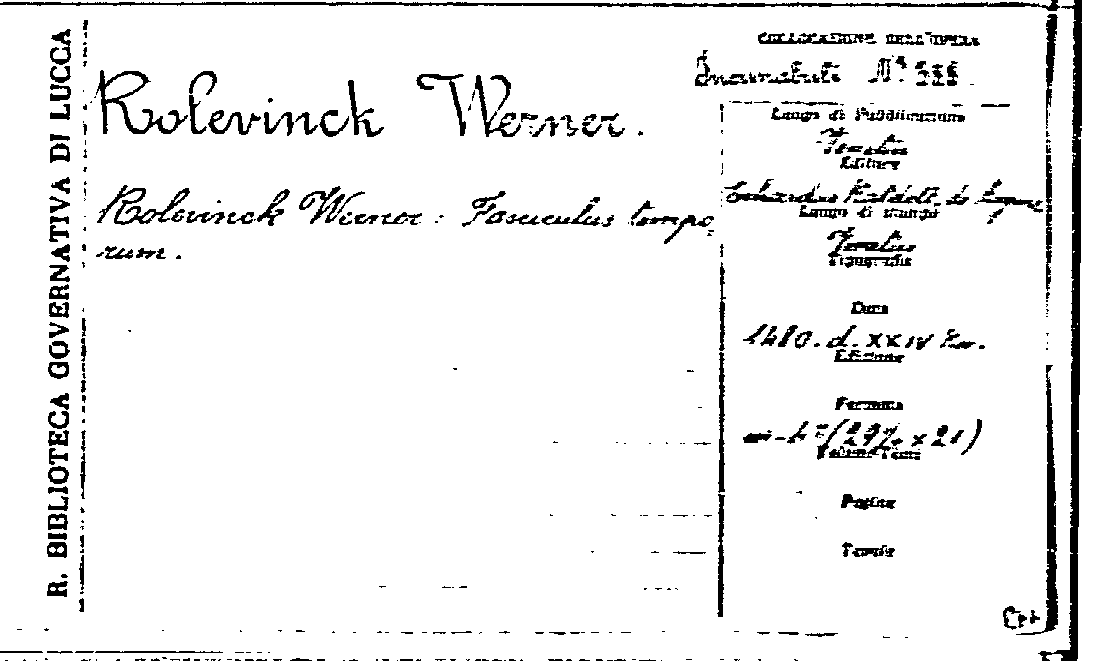 R. BIBLIOTECA GOVERNATIVA DI LUCCA
Rolevinck Werner.
Rolevinck Werner : Fasciculus tempo,
rum.
COLLOCAZIONE DELL'OPERA
Incunabuli N°
Luogo di Pubblicazione
Venetiis
Editore
Erhardus Ratdolt de
Luogo di stampa
Venetiis
Tipografia
Data
1480. d. XXIV
Edizione
Formato
in-4° x 21)
Volumi Tomi
Pagine
Tavole